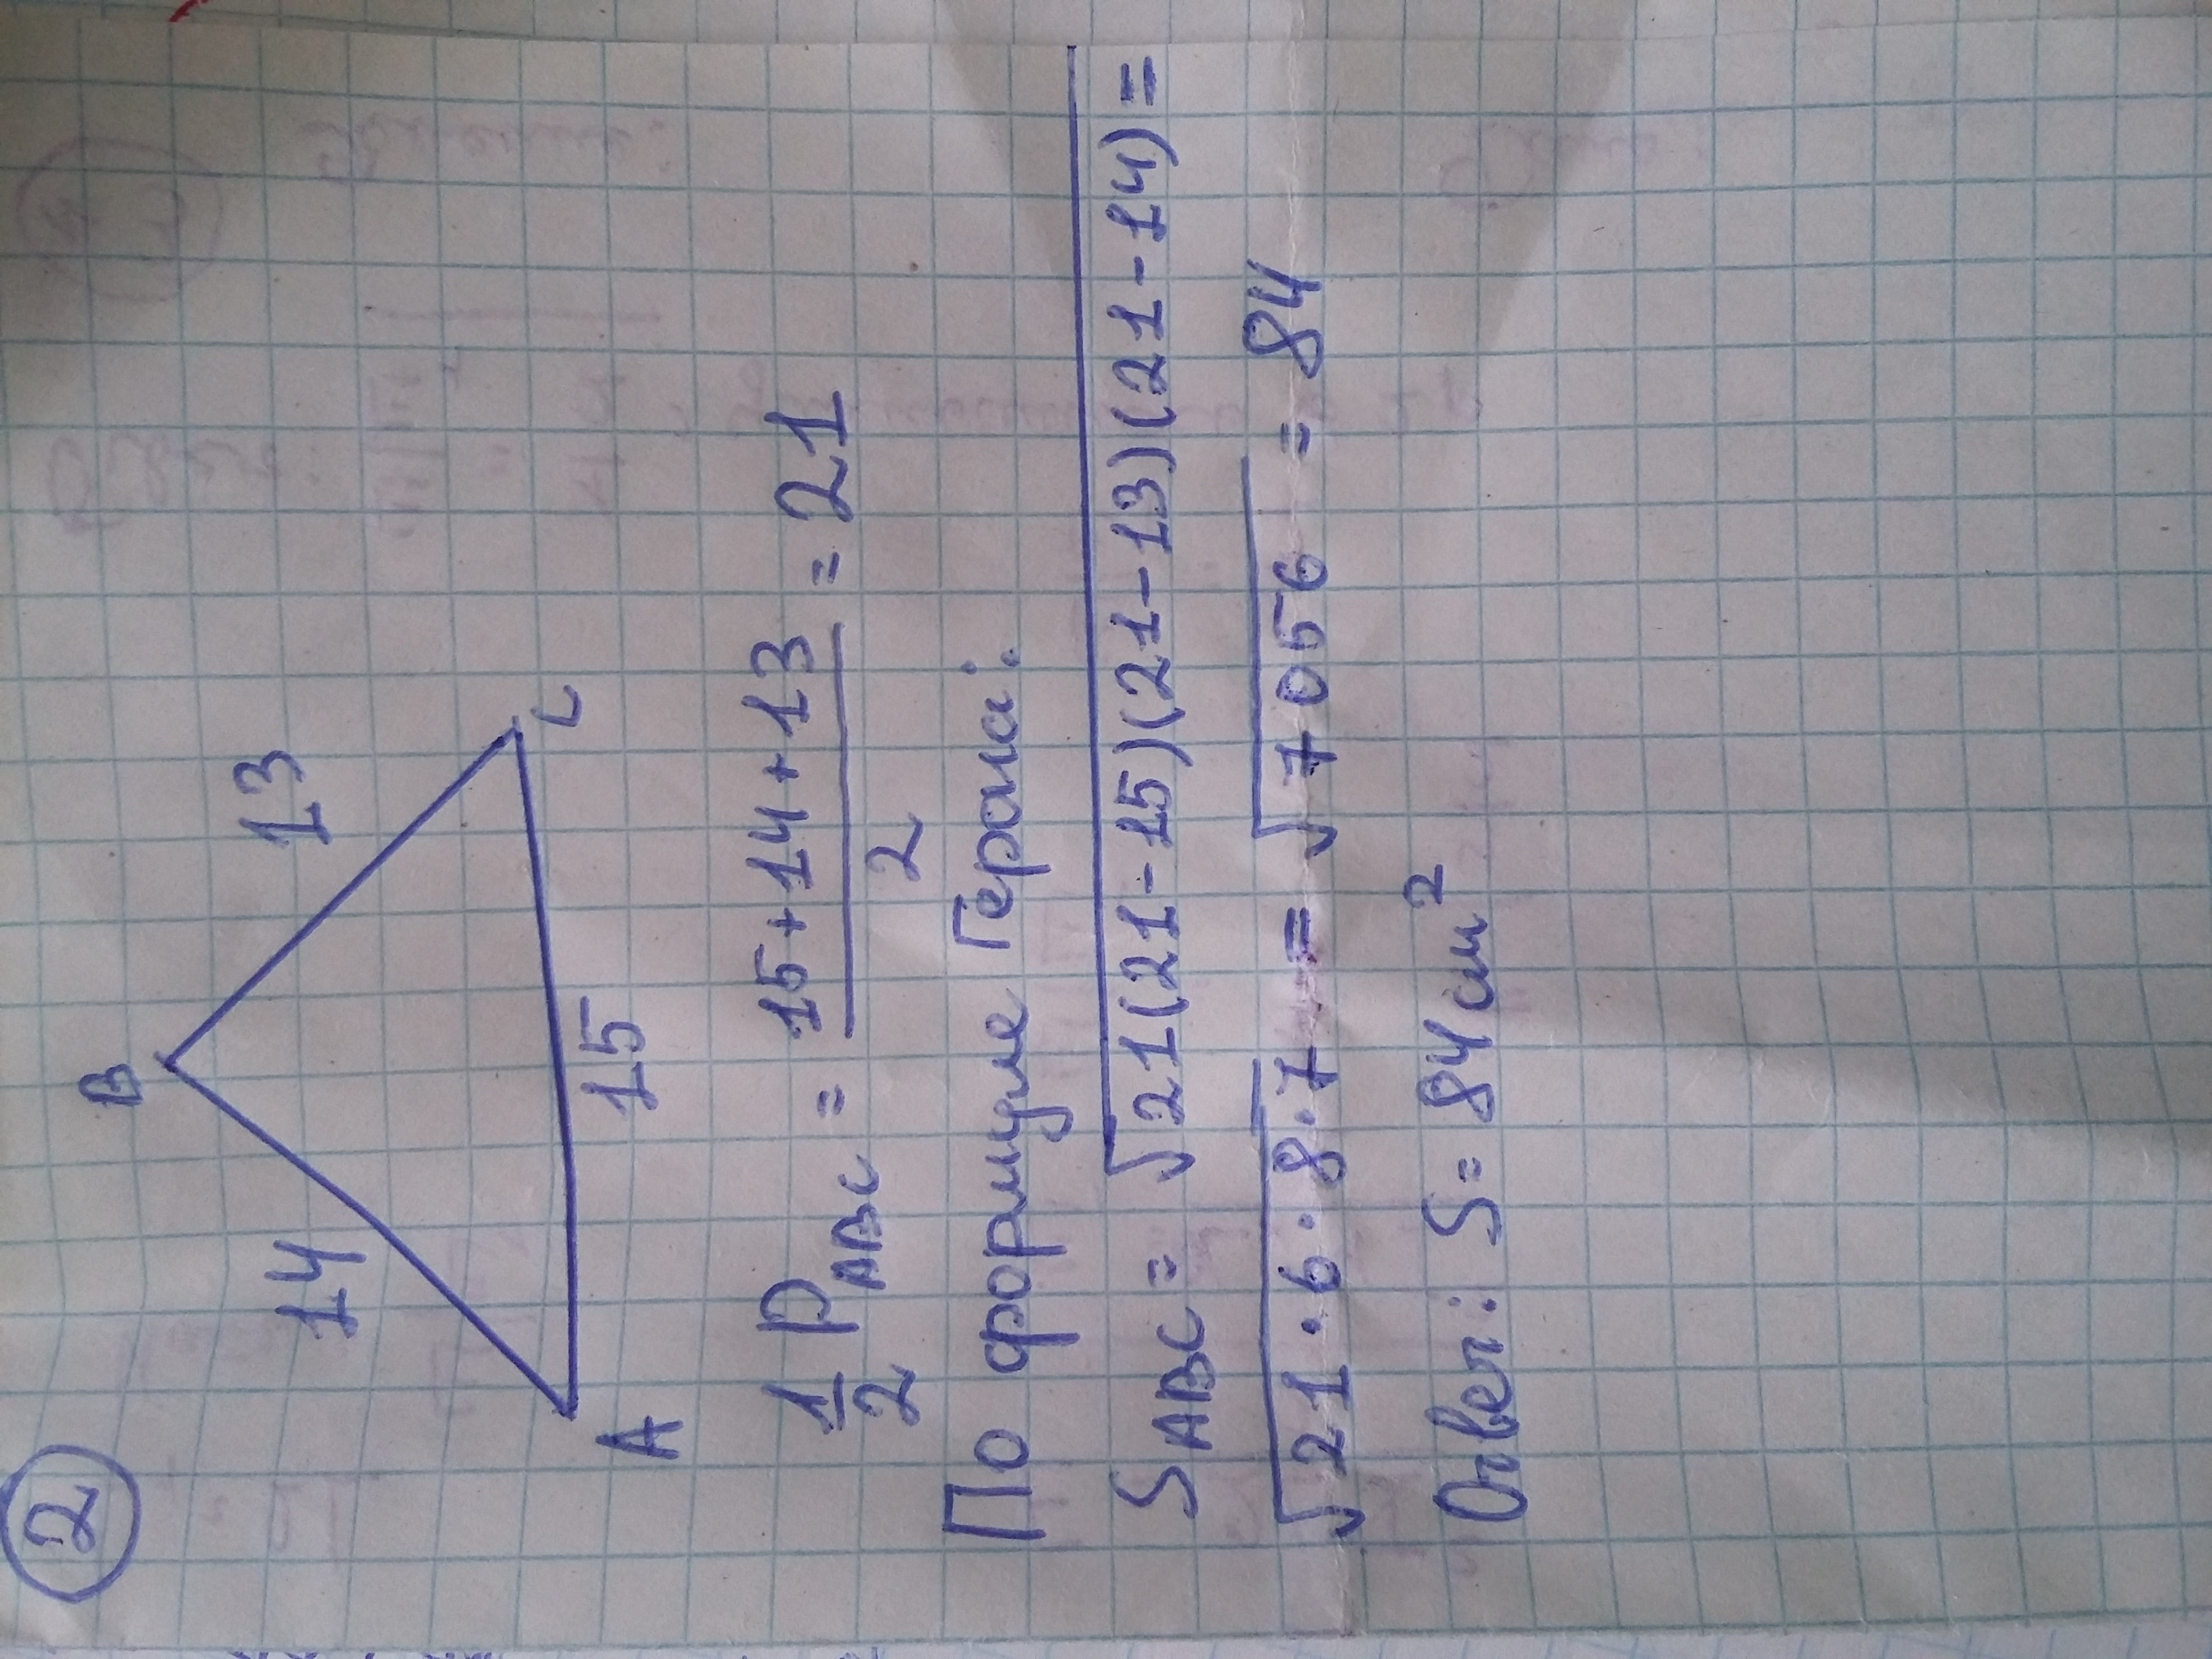 2
B
14
13
A
C
15
1/2 P_ABC = (15+14+13)/2 = 21
По формуле Герона:
S_ABC = √(21(21-15)(21-13)(21-14)) =
√(21·6·8·7) = √7056 = 84
Ответ: S=84 см²